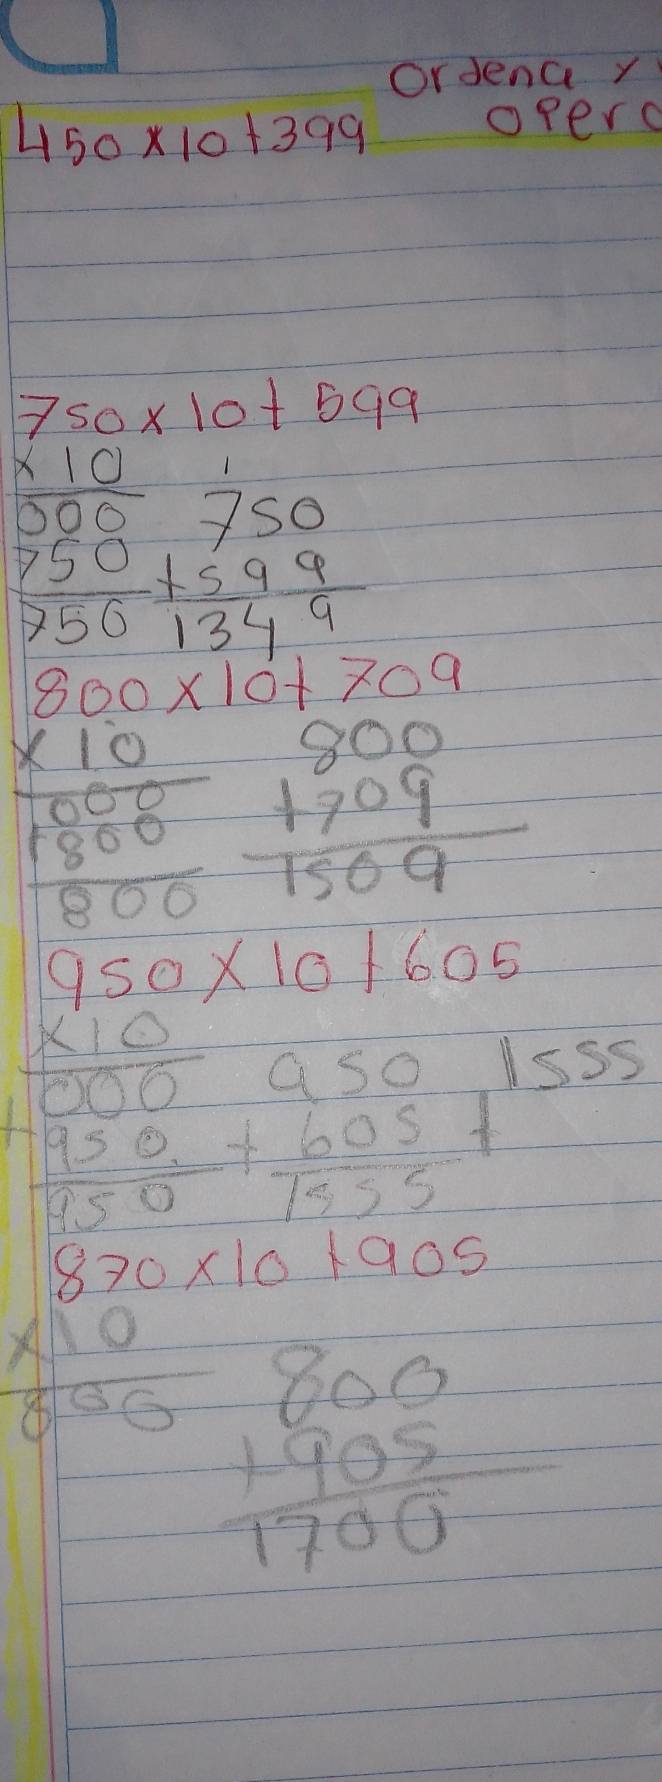 Ordena y
450x10+399 opera
750x10+599
x10 1
000 750
750 +599
750 1349
800x10+709
x10 800
000 +709
+800 1509
800
950x10+605
x10
000 950 1555
+950 +605 +
950 1555
870x10+905
x10 800
800 +905
1700